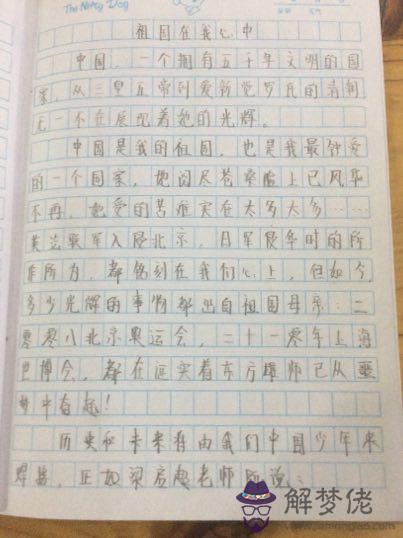 The Nifty Dog
祖国在我心中
中国,一个拥有五千年文明的国
家,从三皇五帝到爱新觉罗氏的清朝
无一不在展现着她的光辉。
中国是我的祖国,也是我最钟爱
的一个国家,她阅尽苍桑脸上已风华
不再,她受的苦难实在太多太多……
英法联军入侵北京,日军侵华时的所
作所为,都铭刻在我们心上,但如今,
多少光辉的事物都出自祖国母亲:二
零零八北京奥运会,二十一零年上海
世博会,都在证实着东方雄师已从噩
梦中奋起!
历史和未来将由我们中国少年来
焊接,正如梁启超老师所说:
解梦佬